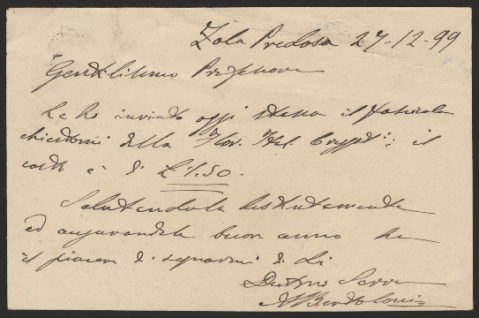 Zola Predosa 27-12-99
Gentilissimo Professore
Le ho inviato oggi stesso il fascicolo
chiestomi della Flor. Ital. Crypt.; il
costo è di £ 1.50.
Salutandola distintamente
ed augurandole buon anno ho
il piacere di segnarmi di Lei
Devmo Servo
A Bertoloni